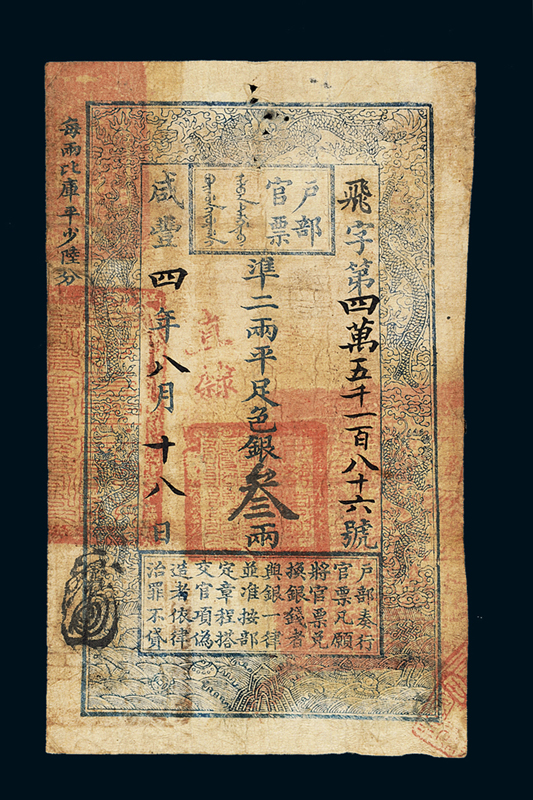 飛字第四萬五千一百八十六號
戶部
官票
準二兩平足色銀叁兩
咸豐四年八月十八日
每兩比庫平少陸分
直隸
戶部奏行
官票凡願
將官票兌
換銀錢者
與銀一律
並准按部
定章程搭
交官項偽
造者依律
治罪不貸